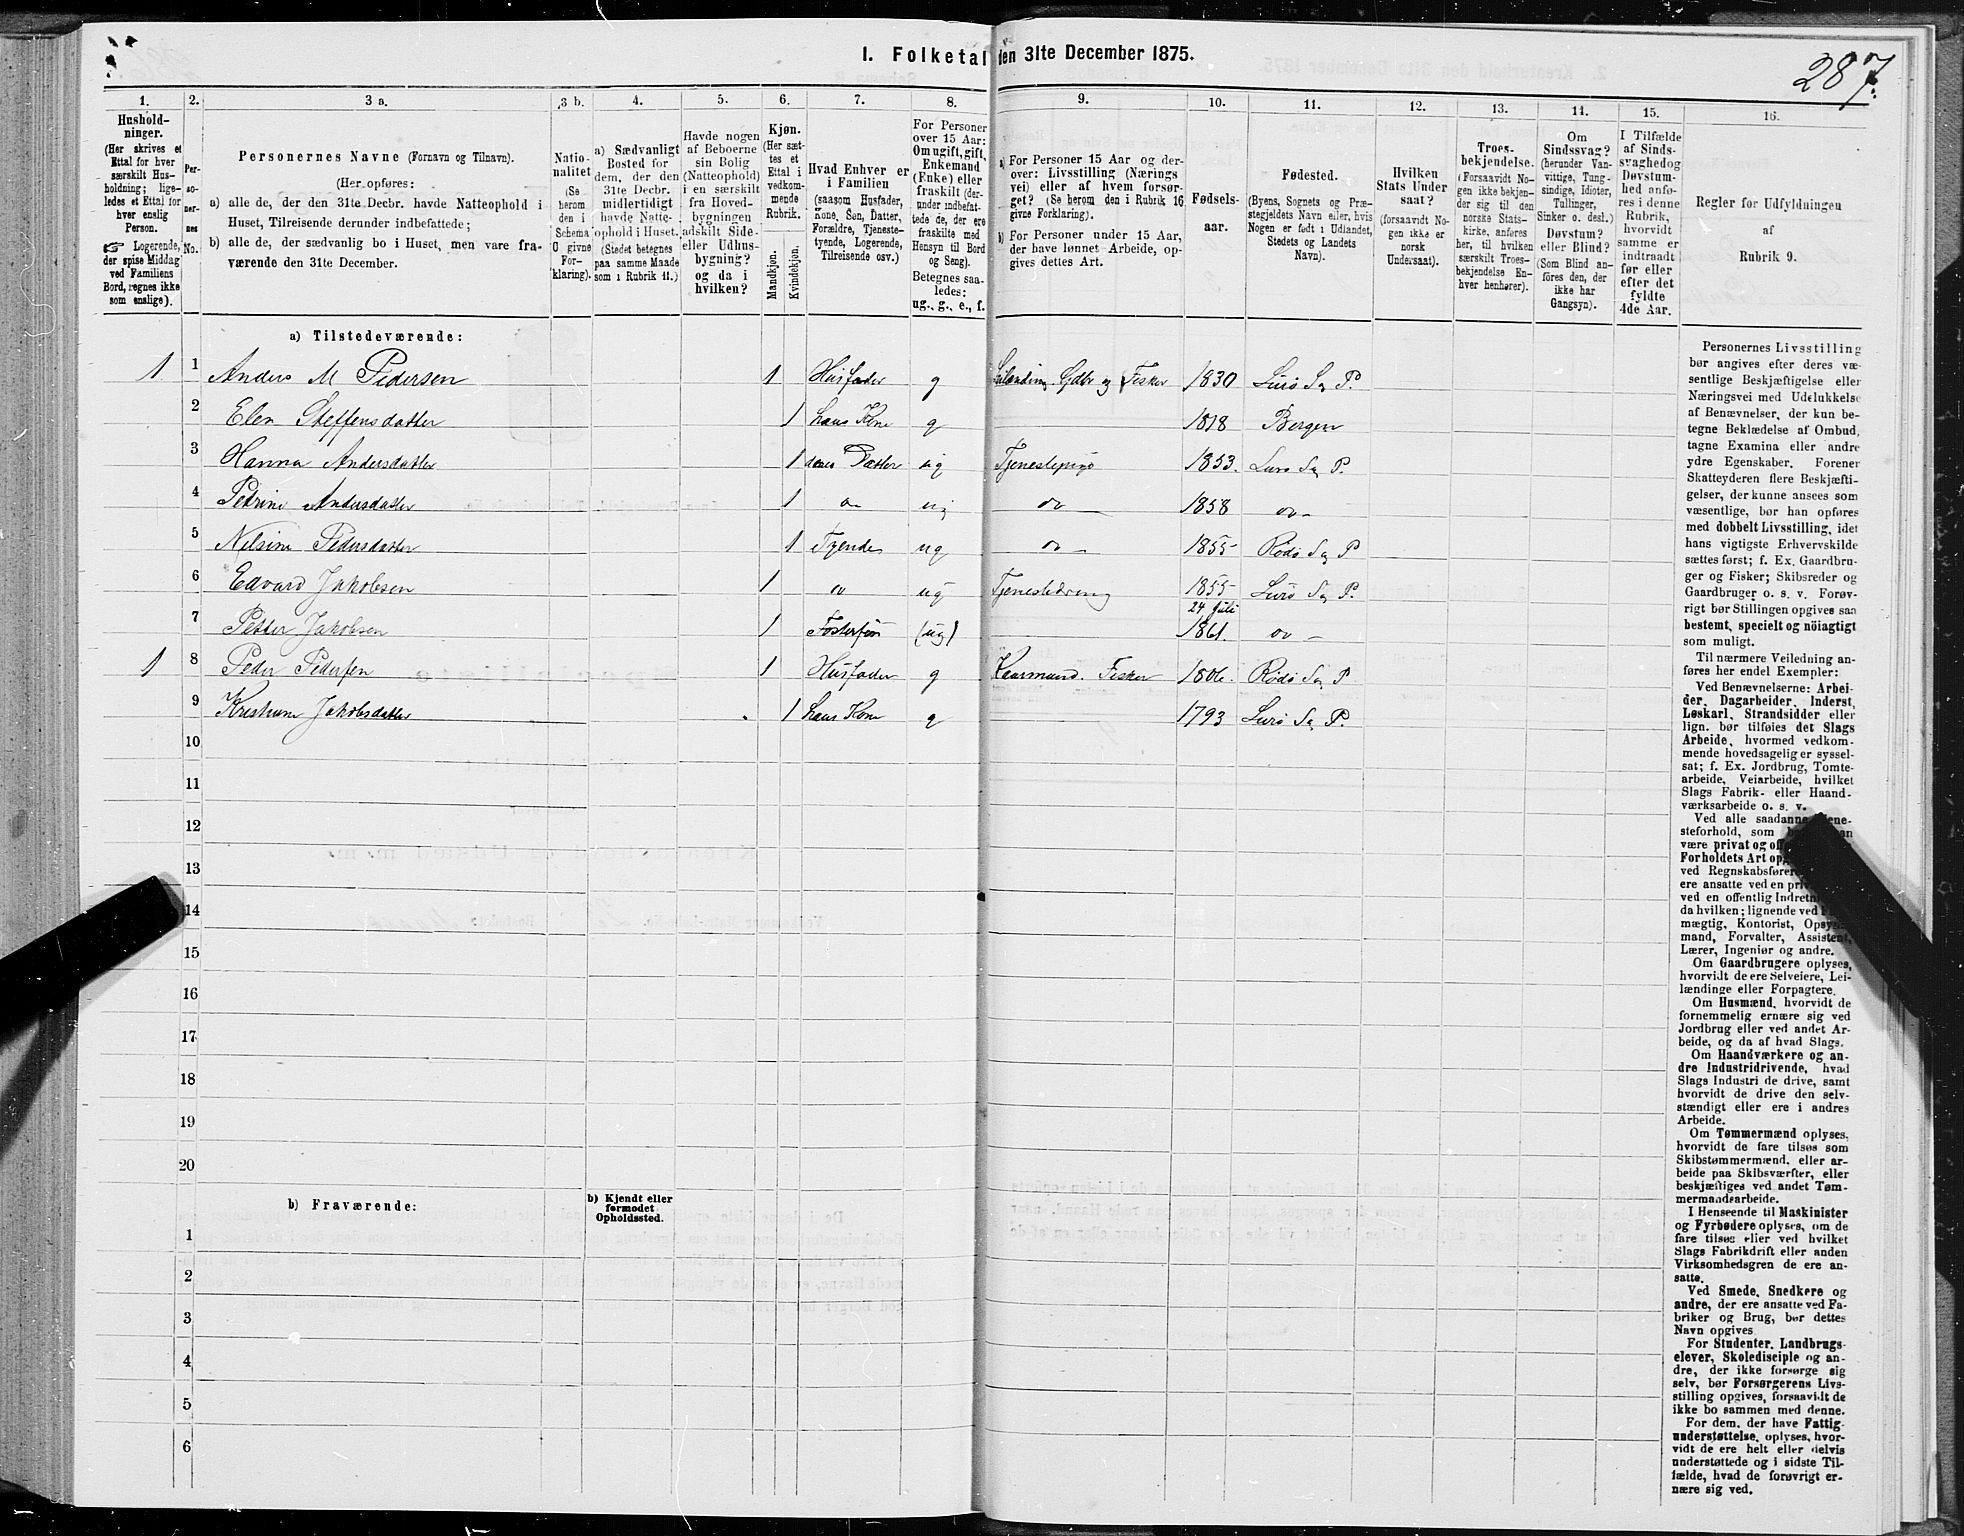 I. Folketal den 31te December 1875.
287.
1. 2. 3 a. 3 b. 4. 5. 6. 7. 8. 9. 10. 11. 12. 13. 14. 15. 16.
Hushold-
ninger.
(Her skrives et
Ettal for hver
særskilt Hus-
holdning; lige-
ledes et Ettal for
hver enslig
Person.
☞ Logerende,
der spise Middag
ved Familiens
Bord, regnes ikke
som enslige).
Per-
so-
ner-
nes
No.
Personernes Navne (Fornavn og Tilnavn).
(Her opføres:
a) alle de, der den 31te Decbr. havde Natteophold i
Huset, Tilreisende derunder indbefattede;
b) alle de, der sædvanlig bo i Huset, men vare fra-
værende den 31te December.
Natio-
nalitet
(Se
herom
den i
Schema
O givne
For-
klaring).
a) Sædvanligt
Bosted for
dem, der den
31te Decbr.
midlertidigt
havde Natte-
ophold i Huset.
(Stedet betegnes
paa samme Maade
som i Rubrik 11.)
Havde nogen
af Beboerne
sin Bolig
(Natteophold)
i en særskilt
fra Hoved-
bygningen
adskilt Side-
eller Udhus-
bygning?
og da i
hvilken?
Kjøn.
(Her sæt-
tes et
Ettal i
vedkom-
mende
Rubrik.
Mandkjøn.
Kvindekjøn.
Hvad Enhver er
i Familien
(saasom Husfader,
Kone, Søn, Datter,
Forældre, Tjeneste-
tyende, Logerende,
Tilreisende osv.)
For Personer
over 15 Aar:
Om ugift, gift,
Enkemand
(Enke) eller
fraskilt (der-
under indbefat-
tede de, der ere
fraskilte med
Hensyn til Bord
og Seng).
Betegnes saa-
ledes:
ug., g., e., f.
a) For Personer 15 Aar og der-
over: Livsstilling (Nærings
vei) eller af hvem forsør-
get? (Se herom den i Rubrik 16
givne Forklaring).
b) For Personer under 15 Aar,
der have lønnet Arbeide, op-
gives dettes Art.
Fødsels-
aar.
Fødested.
(Byens, Sognets og Præ-
stegjeldets Navn eller, hvis
Nogen er født i Udlandet,
Stedets og Landets
Navn).
Hvilken
Stats Under
saat?
(forsaavidt No-
gen ikke er
norsk
Undersaat).
Troes-
bekjendelse.
(Forsaavidt No-
gen ikke bekjen-
der sig til den
norske Stats-
kirke, anføres
her, til hvilken
særskilt Troes-
bekjendelse En-
hver henhører).
Om
Sindssvag?
(herunder Van-
vittige, Tung-
sindige, Idioter,
Tullinger,
Sinker o. desl.)
Døvstum?
eller Blind?
(Som Blind an-
føres den, der
ikke har
Gangsyn).
I Tilfælde
af Sinds-
svaghed og
Døvstum-
hed anfø-
res i denne
Rubrik,
hvorvidt
samme er
indtraadt
før eller
efter det
fyldte
4de Aar.
Regler for Udfyldningen
af
Rubrik 9.
a) Tilstedeværende:
1 1 Anders M Pedersen 1 Husfader g Leilænding Gdbr og Fisker 1830 Lurø S og P.
2 Elen Steffensdatter 1 hans Kone g 1818 Bergen
3 Hanna Andersdatter 1 deres Datter ug Tjenestepige 1853. Lurø S og P.
4 Petrine Andersdatter 1 do ug do 1858 do
5 Nilsine Pedersdatter 1 Tyende ug do 1855 Rødø S og P
6 Edvard Jakobsen 1 do ug Tjenestedreng 1855 Lurø S og P.
7 Petter Jakobsen 1 Fostersøn (ug) 24 Juli 1861. do
1 8 Peder Pedersen 1 Husfader g Kaarmand. Fisker 1806. Rødø S og P
9 Kristiane Jakobsdatter 1 hans Kone g 1793 Lurø S og P.
10
11
12
13
14
15
16
17
18
19
20
b) Fraværende:
b) Kjendt eller
formodet
Opholdssted.
1
2
3
4
5
6
Personernes Livsstilling
bør angives efter deres væ-
sentlige Beskjæftigelse eller
Næringsvei med Udelukkelse
af Benævnelser, der kun be-
tegne Beklædelse af Ombud,
tagne Examina eller andre
ydre Egenskaber. Forener
Skatteyderen flere Beskjæfti-
gelser, der kunne ansees som
væsentlige, bør han opføres
med dobbelt Livsstilling, idet
hans vigtigste Erhvervskilde
sættes først; f. Ex. Gaardbru-
ger og Fisker; Skibsreder og
Gaardbruger o. s. v. Forøv-
rigt bør Stillingen opgives saa
bestemt, specielt og nöiagtigt
som muligt.
Til nærmere Veiledning an-
føres her endel Exempler:
Ved Benævnelserne: Arbei-
der, Dagarbeider, Inderst,
Løskarl, Strandsidder eller
lign. bør tilføies det Slags
Arbeide, hvormed vedkom-
mende hovedsagelig er syssel-
sat; f. Ex. Jordbrug, Tomte-
arbeide, Veiarbeide, hvilket
Slags Fabrik- eller Haand-
værksarbeide o. s. v.
Ved alle saadanne
steforhold, som
være privat og
Forholdets Art
ved Regnskabsfører
ere ansatte ved en
ved en offentlig
da hvilken; lignende ved
mægtig, Kontorist,
mand, Forvalter, Assistent,
Lærer, Ingeniør og andre.
Om Gaardbrugere oplyses,
hvorvidt de ere Selveiere, Lei-
lændinge eller Forpagtere.
Om Husmænd, hvorvidt de
fornemmelig ernære sig ved
Jordbrug eller ved andet Ar-
beide, og da af hvad Slags.
Om Haandværkere og an-
dre Industridrivende, hvad
Slags Industri de drive, samt
hvorvidt de drive den selv-
stændigt eller ere i andres
Arbeide.
Om Tømmermænd oplyses,
hvorvidt de fare tilsøs som
Skibstømmermænd, eller ar-
beide paa Skibsværfter, eller
beskjæftiges ved andet Tøm-
mermandsarbeide.
I Henseende til Maskinister
og Fyrbødere oplyses, om de
fare tilsøs eller ved hvilket
Slags Fabrikdrift eller anden
Virksomhedsgren de ere an-
satte.
Ved Smede, Snedkere og
andre, der ere ansatte ved Fa-
briker og Brug, bør dettes
Navn opgives
For Studenter, Landbrugs-
elever, Skoledisciple og an-
dre, der ikke forsørge sig
selv, bør Forsørgerens Livs-
stilling opgives, forsaavidt de
ikke bo sammen med denne.
For dem, der have Fattig-
understøttelse, oplyses, hvor-
vidt de ere helt eller delvis
understøttede og i sidste Til-
fælde, hvad de forøvrigt er-
nære sig ved.